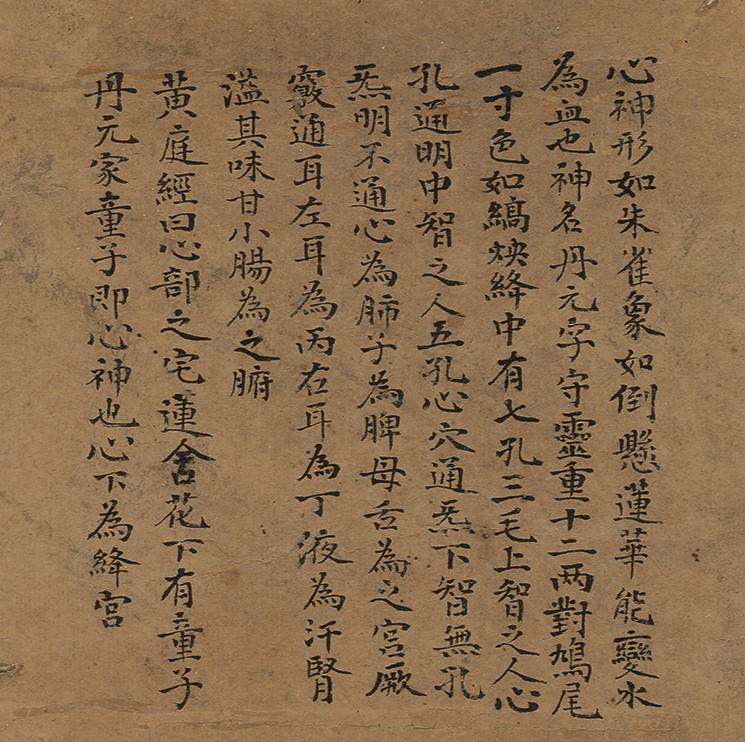 心神形如朱雀象如倒懸蓮華能變水
為血也神名丹元字守靈重十二两對鳩尾
一寸色如縞焕絳中有七孔三毛上智之人心
孔通明中智之人五孔心穴通炁下智無孔
炁明不通心為肺子為脾母舌為之宮厥
竅通耳左耳為丙右耳為丁液為汗腎
溢其味甘小腸為之腑
黃庭經曰心部之宅蓮含花下有童子
丹元家童子即心神也心下為絳宮